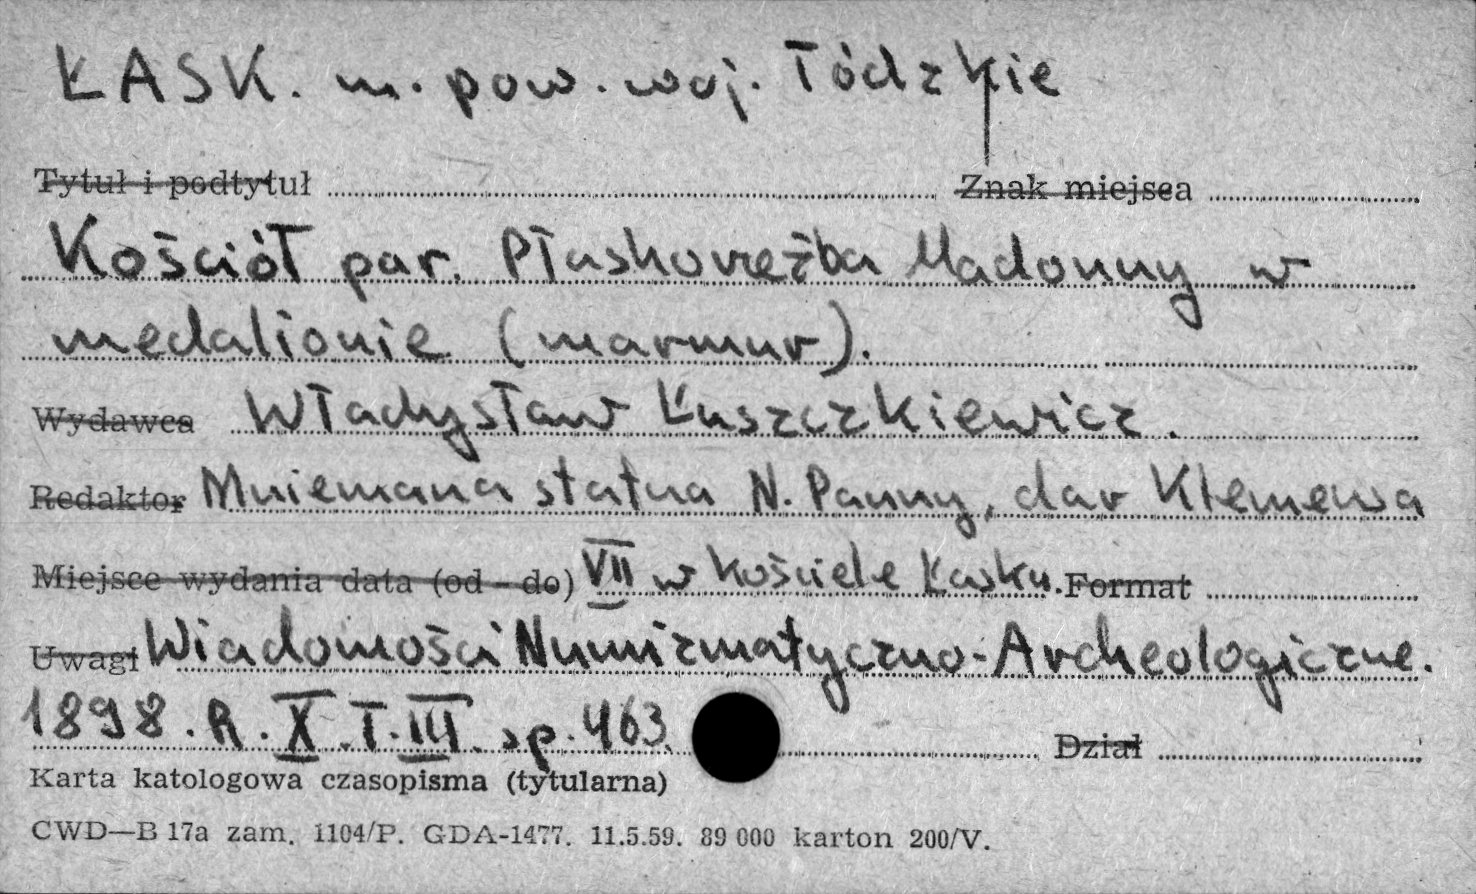 ŁASK. m. pow. woj. Łódzkie
Tytuł i podtytuł Znak miejsca
Kościół par. Płaskorzeźba Madonny w
medalionie (marmur).
Wydawca Władysław Łuszczkiewicz.
Redaktor Mniemana statua N. Panny, dar Klemensa
Miejsce wydania data (od - do) VII w kościele Łasku. Format
Uwagi Wiadomości Numizmatyczno-Archeologiczne.
1898. R. X. T. III. sp. 463. Dział
Karta katologowa czasopisma (tytularna)
CWD—B 17a zam. 1104/P. GDA-1477. 11.5.59. 89 000 karton 200/V.